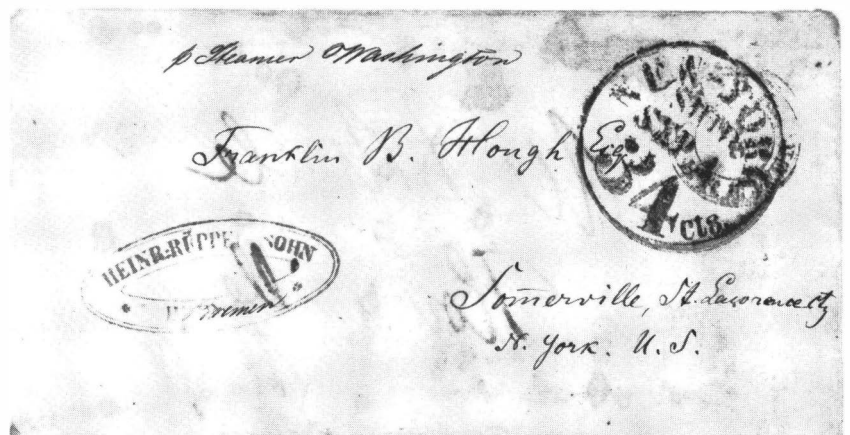 p Steamer Washington
Franklin B. Hough Esq.
NEW-YORK
SHIP
34
cts.
HEINR. RÜPPEL SOHN
Bremen
Somerville, St. Lawrence cty
N. York. U. S.